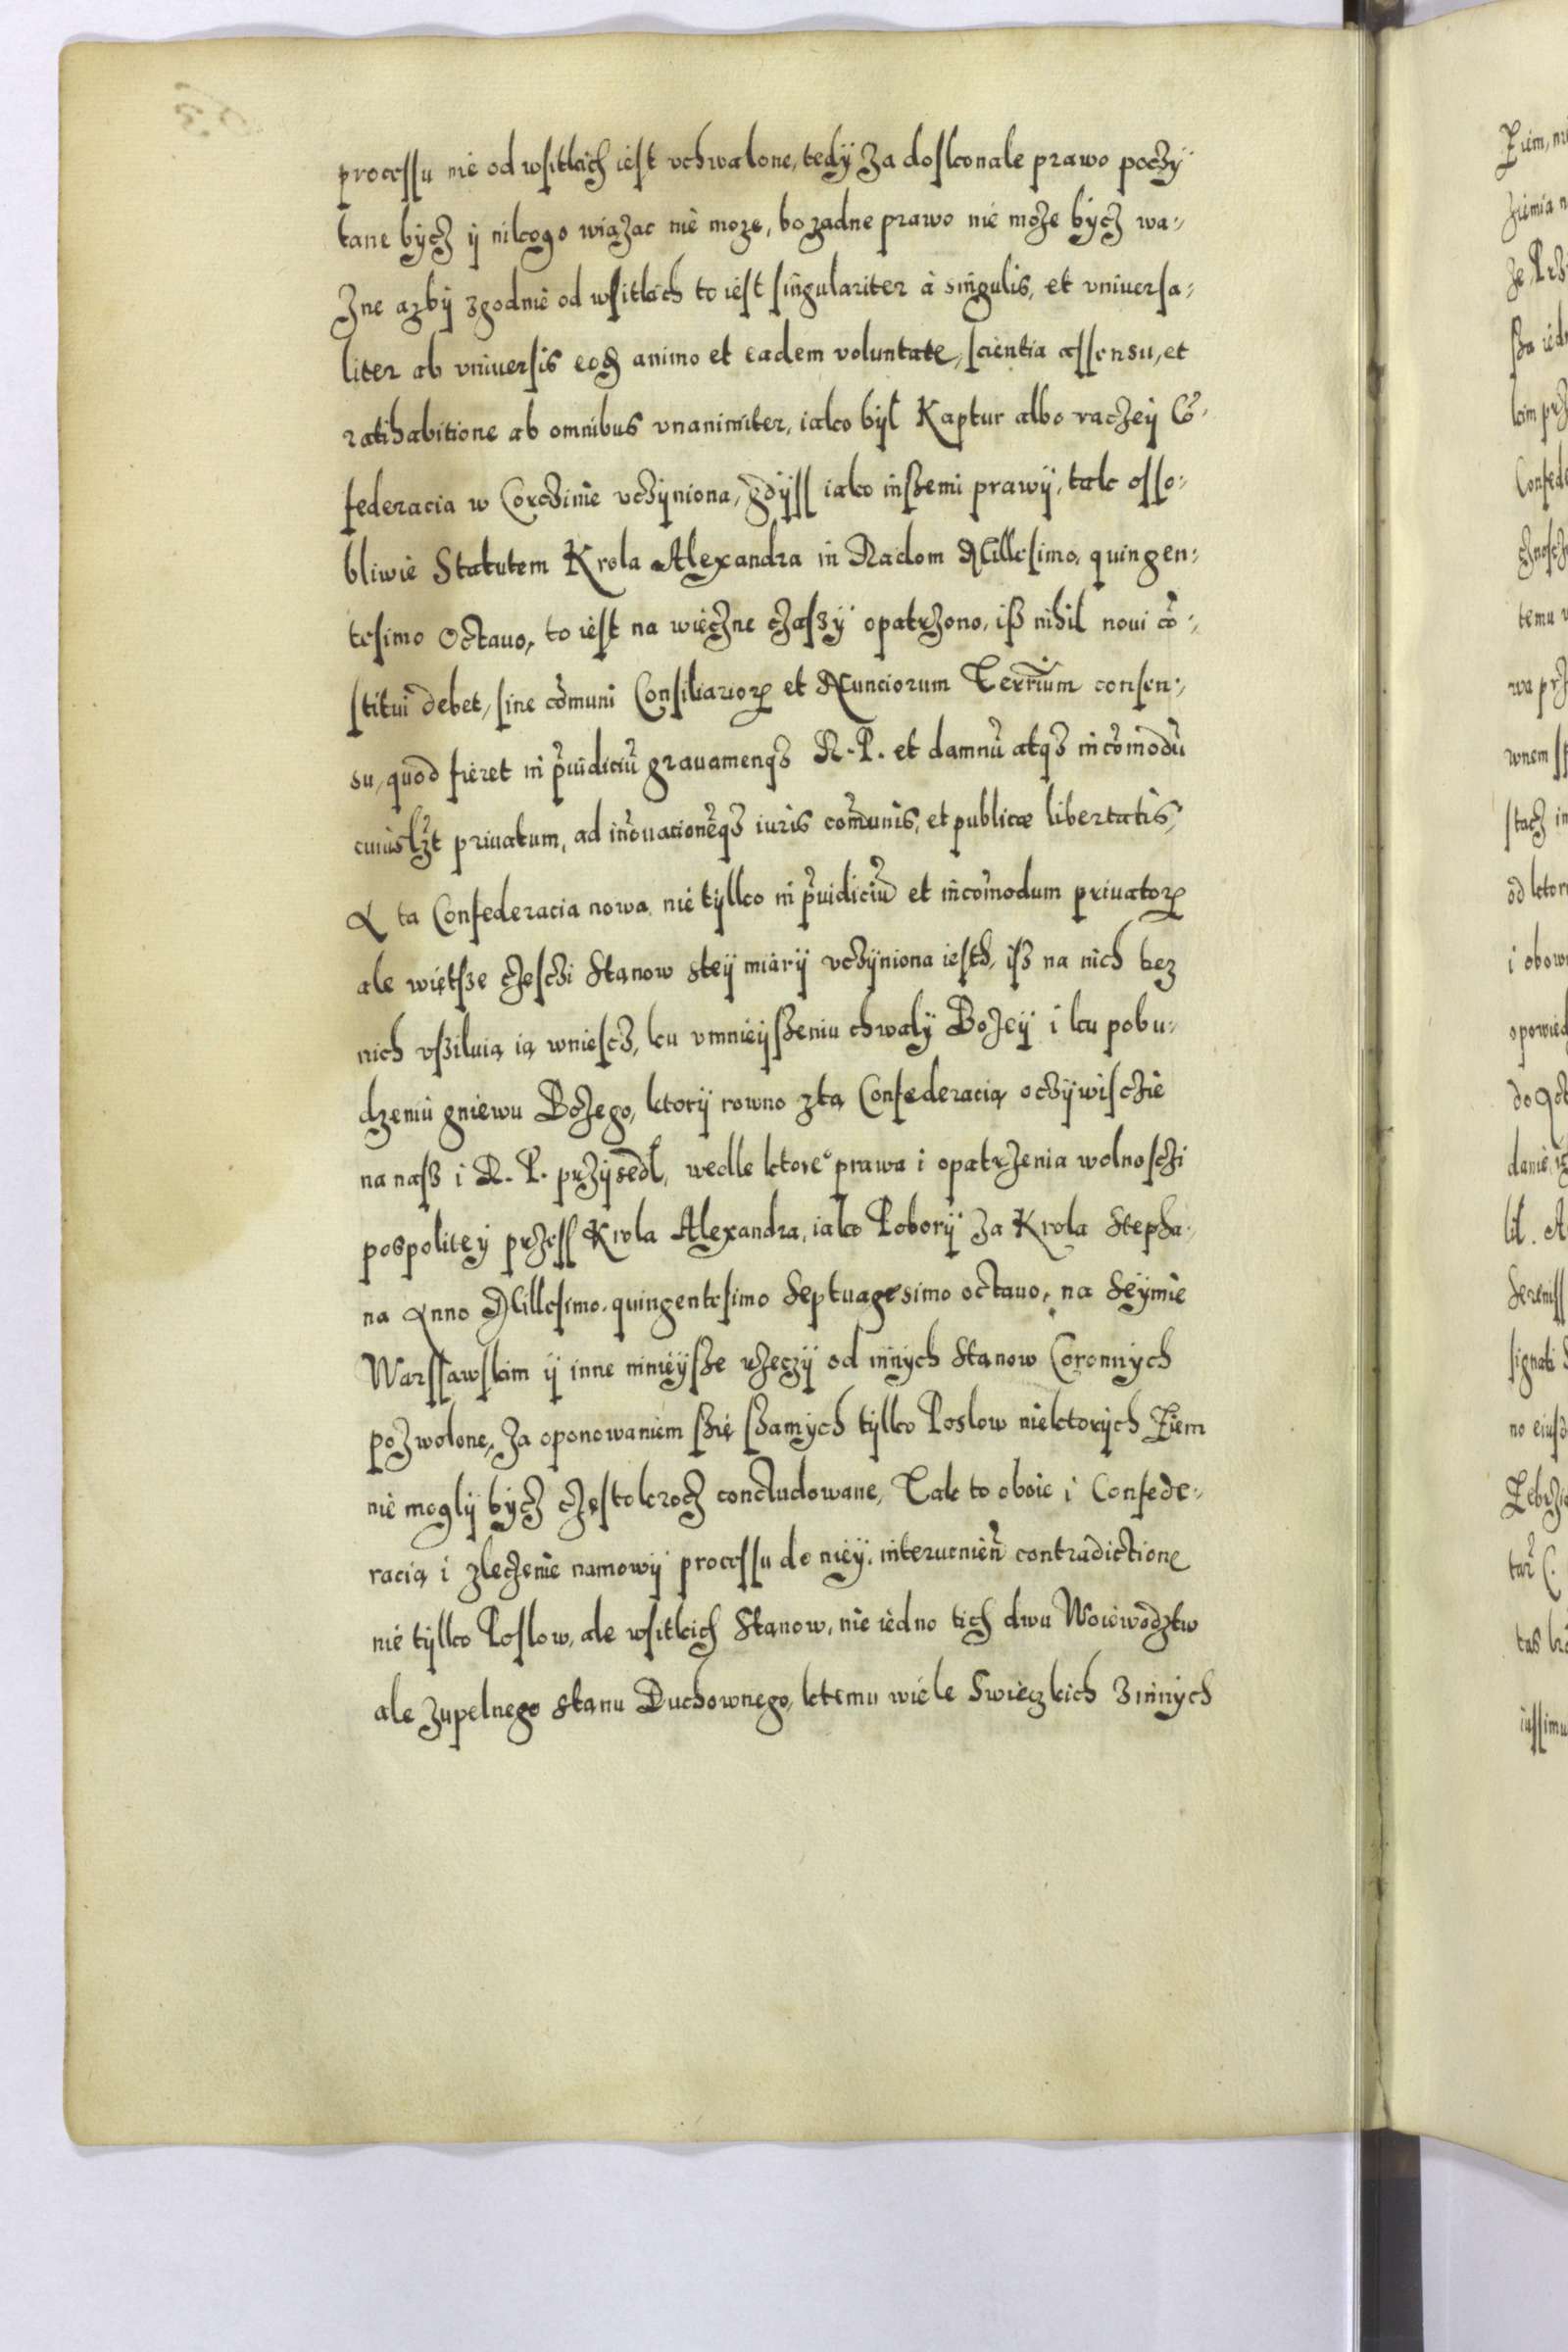 processu nie od wsitkich iest vchwalone, tedÿ za doskonale prawo poczÿ
tane bÿcz ÿ nikogo wiązac nie moze, bo zadne prawo nie może bÿcz wa-
zne azbÿ zgodnie od wsitkich to iest singulariter à singulis, et vniuersa-
liter ab vniuersis eoq animo et eadem voluntate, scientia assensu, et
ratihabitione ab omnibus vnanimiter, iako bÿl Kaptur albo raczeÿ Cō-
federacia w Corczinie vczÿniona, gdÿss iako inßemi prawÿ, tak osso-
bliwie Statutem Krola Alexandra in Radom Millesimo, quingen-
tesimo Octauo, to iest na wieczne czaszÿ opatrzono, iß nihil noui cō-
stitui debet, sine cōmuni Consiliarioꝝ et Nunciorum Terrīum consen-
su, quod fieret in p̄iudiciū grauamenqꝫ R. P. et damnū atqꝫ incōmodū
cuiuslꝫt priuatum, ad iñouationēqꝫ iuris cōmunis, et publicæ libertatis,
A ta Confederacia nowa nie tÿlko in p̄iudiciū et incōmodum priuatoꝝ
ale więtsze częsczi Stanow steÿ miarÿ vczÿniona iesth, ißz na nich bez
nich vßiluią ią wniescz, ku vmnieÿßeniu chwalÿ Bożeÿ i ku pobu-
dzeniu gniewu Bożego, ktorÿ rowno ztą Confederacią oczÿwisczie
na nasz i R. P. przÿsedl, wedle ktore° prawa i opatrzenia wolnosczi
pospoliteÿ przess Krola Alexandra, iako Poborÿ za Krola Stepha-
na Anno Millesimo quingentesimo Septuagesimo octauo, na Seÿmie
Warssawskim ÿ inne mnieÿsze rzeczÿ od innÿch Stanow Coronnÿch
pozwolone, za oponowaniem ßię ßamÿch tÿlko Poslow niektorÿch Ziem
nie moglÿ bÿcz częstokrocz concludowane, Tak to oboie i Confede-
racią i zleczenie namowÿ processu do nieÿ, interuenien̄ contradictione
nie tÿlko Poslow, ale wsitkich Stanow, nie iedno tich dwu Woiewodztw
ale zupelnego Stanu Duchownego, ktemu wiele Swieczkich z innÿch